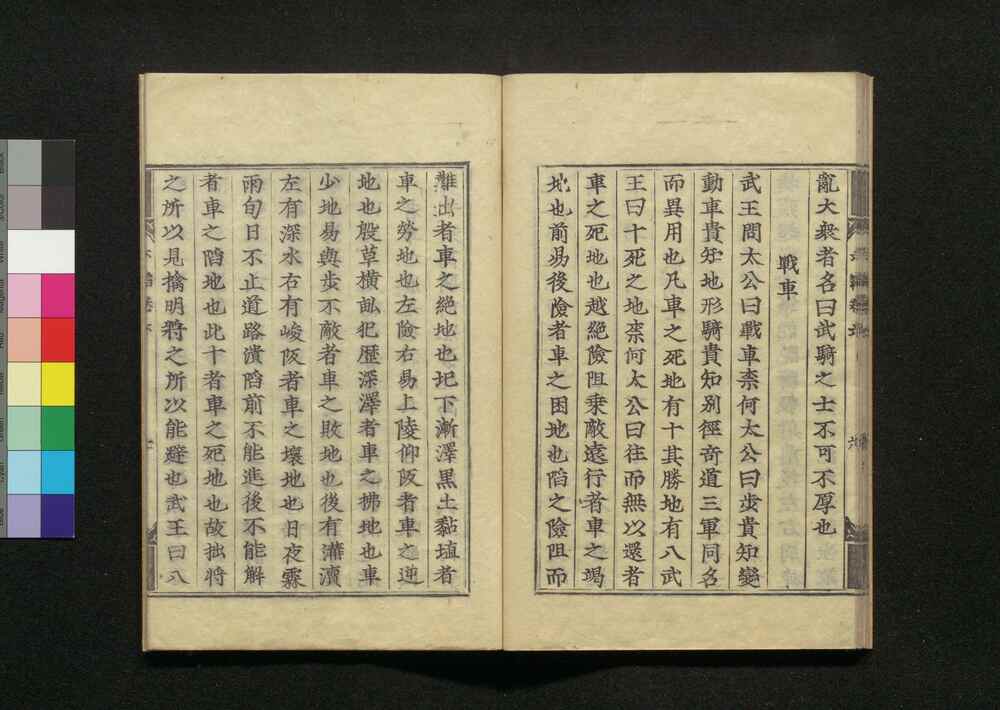 亂大衆者名曰武騎之士不可不厚也
戰車
武王問太公曰戰車柰何太公曰步貴知變
動車貴知地形騎貴知别徑奇道三軍同名
而異用也凡車之死地有十其勝地有八武
王曰十死之地柰何太公曰往而無以還者
車之死地也越絕險阻乗敵遠行者車之竭
地也前易後險者車之困地也陷之險阻而
難出者車之絕地也圯下漸澤黑土黏埴者
車之勞地也左險右易上陵仰阪者車之逆
地也殷草橫畝犯歷深澤者車之拂地也車
少地易與步不敵者車之敗地也後有溝瀆
左有深水右有峻阪者車之壞地也日夜霖
雨旬日不止道路潰陷前不能進後不能解
者車之陷地也此十者車之死地也故拙將
之所以見擒明將之所以能避也武王曰八